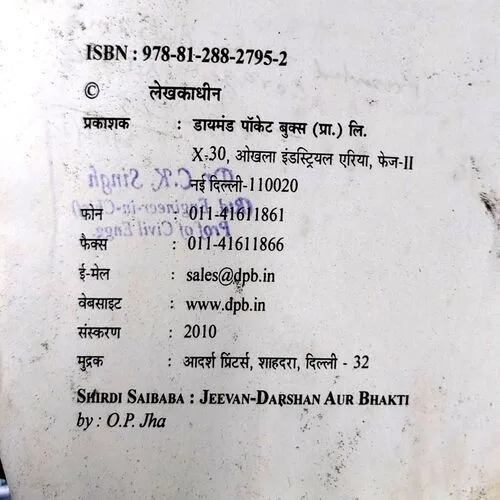 ISBN : 978-81-288-2795-2
© लेखकाधीन
प्रकाशक : डायमंड पॉकेट बुक्स (प्रा.) लि.
X-30, ओखला इंडस्ट्रियल एरिया, फेज-II
नई दिल्ली-110020
फोन : 011-41611861
फैक्स : 011-41611866
ई-मेल : sales@dpb.in
वेबसाइट : www.dpb.in
संस्करण : 2010
मुद्रक : आदर्श प्रिंटर्स, शाहदरा, दिल्ली - 32
SHIRDI SAIBABA : JEEVAN-DARSHAN AUR BHAKTI
by : O.P. Jha